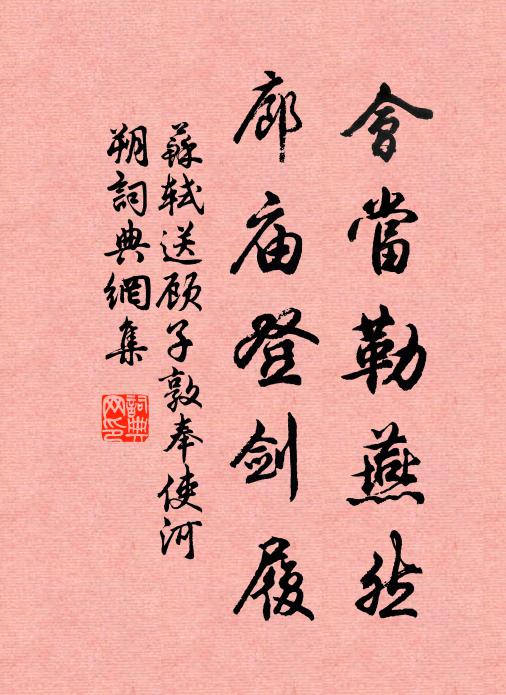 會當勒燕然
廊庙登剑履
蘇軾送顾子敦奉使河
朔詞典網集
詞典网印